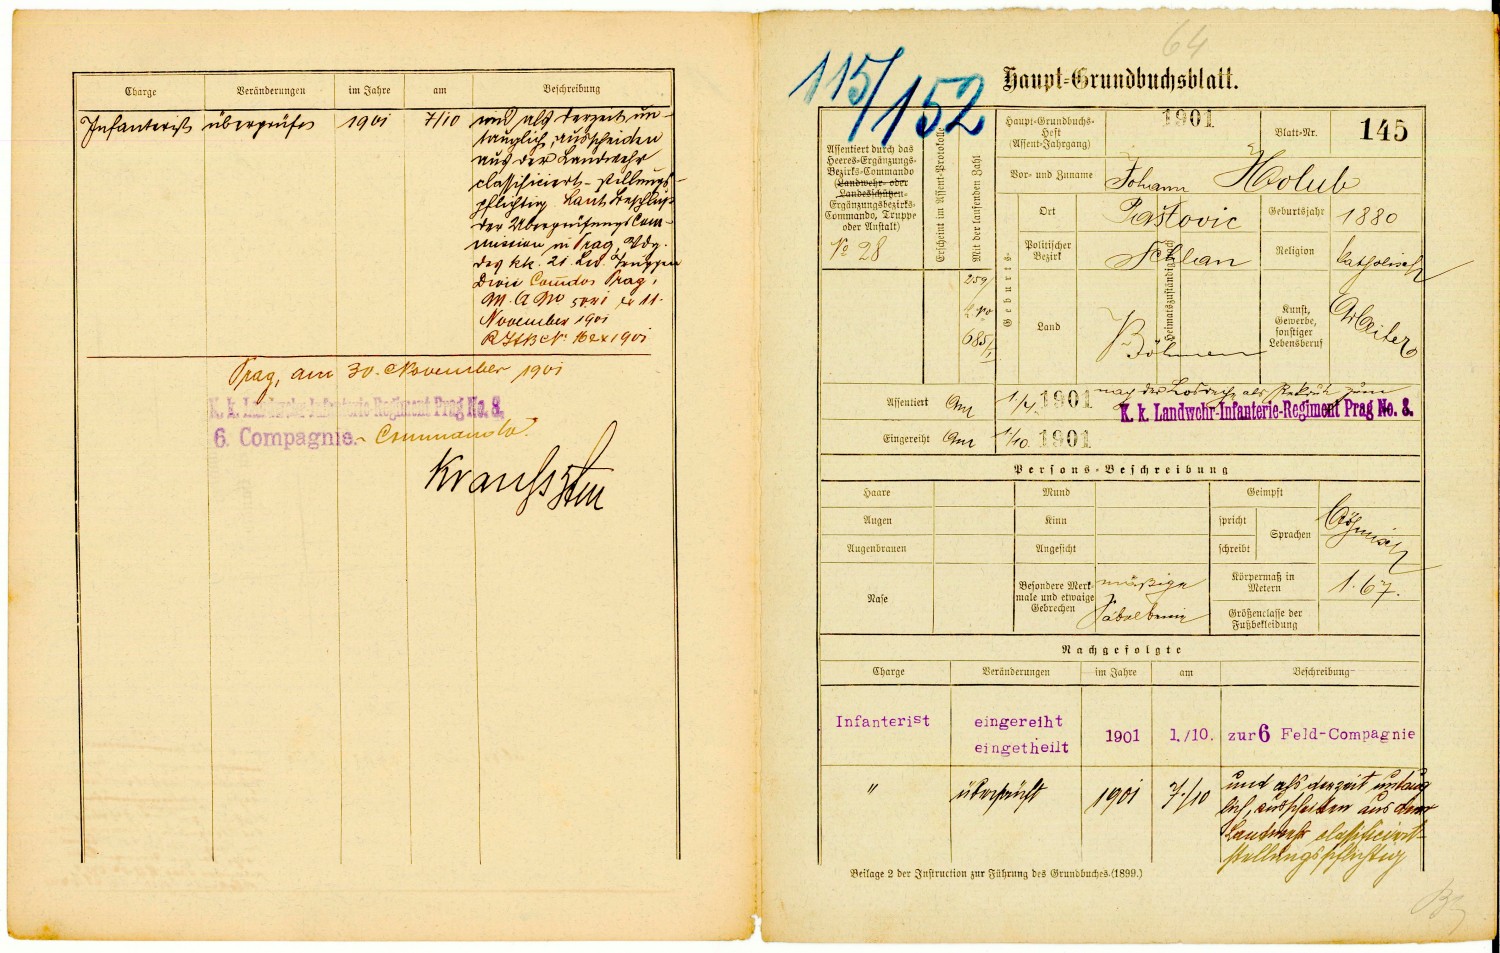 Charge
Veränderungen
im Jahre
am
Beschreibung
Infanterist
überprüft
1901
7/10
und als derzeit un-
tauglich, ausscheiden
aus der Landwehr
classificiert - stellungs-
pflichtig. Laut Beschluß
der Überprüfungscom-
mission in Prag, Vdg.
des kk. 21. Lw. Truppen
Divis Comdos Prag,
M. A. No 5071 v 11.
November 1901
Prag, am 30. November 1901
K. k. Landwehr-Infanterie-Regiment Prag No. 8.
6. Compagnie - Commando.
64
115/152
Haupt-Grundbuchsblatt.
Assentiert durch das
Heeres-Ergänzungs-
Bezirks-Commando
(Landwehr- oder
Landesschützen-
Ergänzungsbezirks-
Commando, Truppe
oder Anstalt)
No 28
Erscheint im Assent-Protokolle
Mit der laufenden Zahl
259/
685/1
Haupt-Grundbuchs-
Heft
(Assent-Jahrgang)
1901
Blatt-Nr.
145
Vor- und Zuname
Johann Holub
Geburts-
Ort
Geburtsjahr
1880
Politischer
Bezirk
Schlan
Heimatszuständigkeit
Religion
katholisch
Land
Böhmen
Kunst,
Gewerbe,
sonstiger
Lebensberuf
Arbeiter
Assentiert
Am
1/4. 1901
nach der Losreihe als Rekrut zum
K. k. Landwehr-Infanterie-Regiment Prag No. 8.
Eingereiht
Am
1/10. 1901
Persons-Beschreibung
Haare
Mund
Geimpft
Augen
Kinn
spricht
Sprachen
Böhmisch
Augenbrauen
Angesicht
schreibt
Nase
Besondere Merk-
male und etwaige
Gebrechen
mäßige
Säbelbeine
Körpermaß in
Metern
1.67.
Größenclasse der
Fußbekleidung
Nachgefolgte
Charge
Veränderungen
im Jahre
am
Beschreibung
Infanterist
eingereiht
eingetheilt
1901
1./10.
zur 6 Feld-Compagnie
"
überprüft
1901
7./10
und als derzeit untaug
lich, ausscheiden aus der
Landwehr classificiert-
stellungspflichtig
Beilage 2 der Instruction zur Führung des Grundbuches. (1899.)